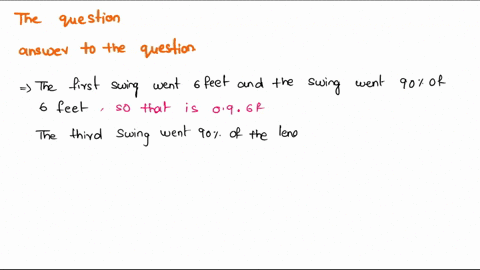 The question
answer to the question
=> The first swing went 6 feet and the swing went 90% of
6 feet, so that is 0.9.6f
The third swing went 90% of the leng